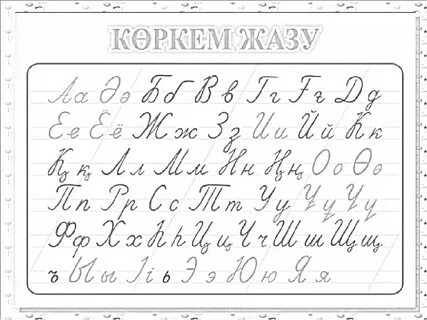 КӨРКЕМ ЖАЗУ
Аа Әә Бб Вв Гг Ғғ Дд
Ее Ёё Жж Зз Ии Йй Кк
Ққ Лл Мм Нн Ңң Оо Өө
Пп Рр Сс Тт Уу Ұұ Үү
Фф Хх Һһ Цц Чч Шш Щщ
ъ Ыы Іі ь Ээ Юю Яя